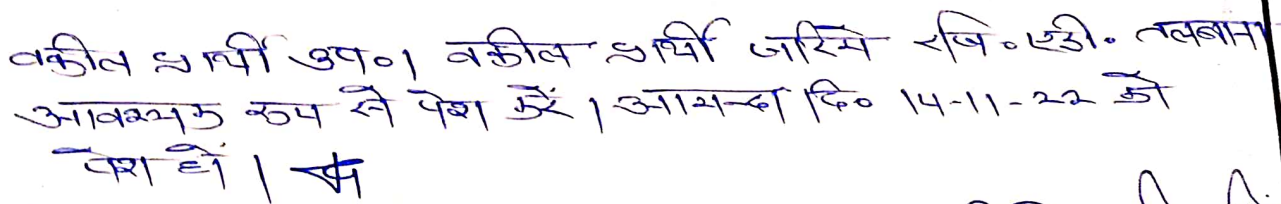 वकील प्रार्थी उप०। वकील प्रार्थी जरिये रजि०एडी० तलबाना
आवश्यक रूप से पेश करें। आयन्दा दि० 14-11-22 को
पेश हो।